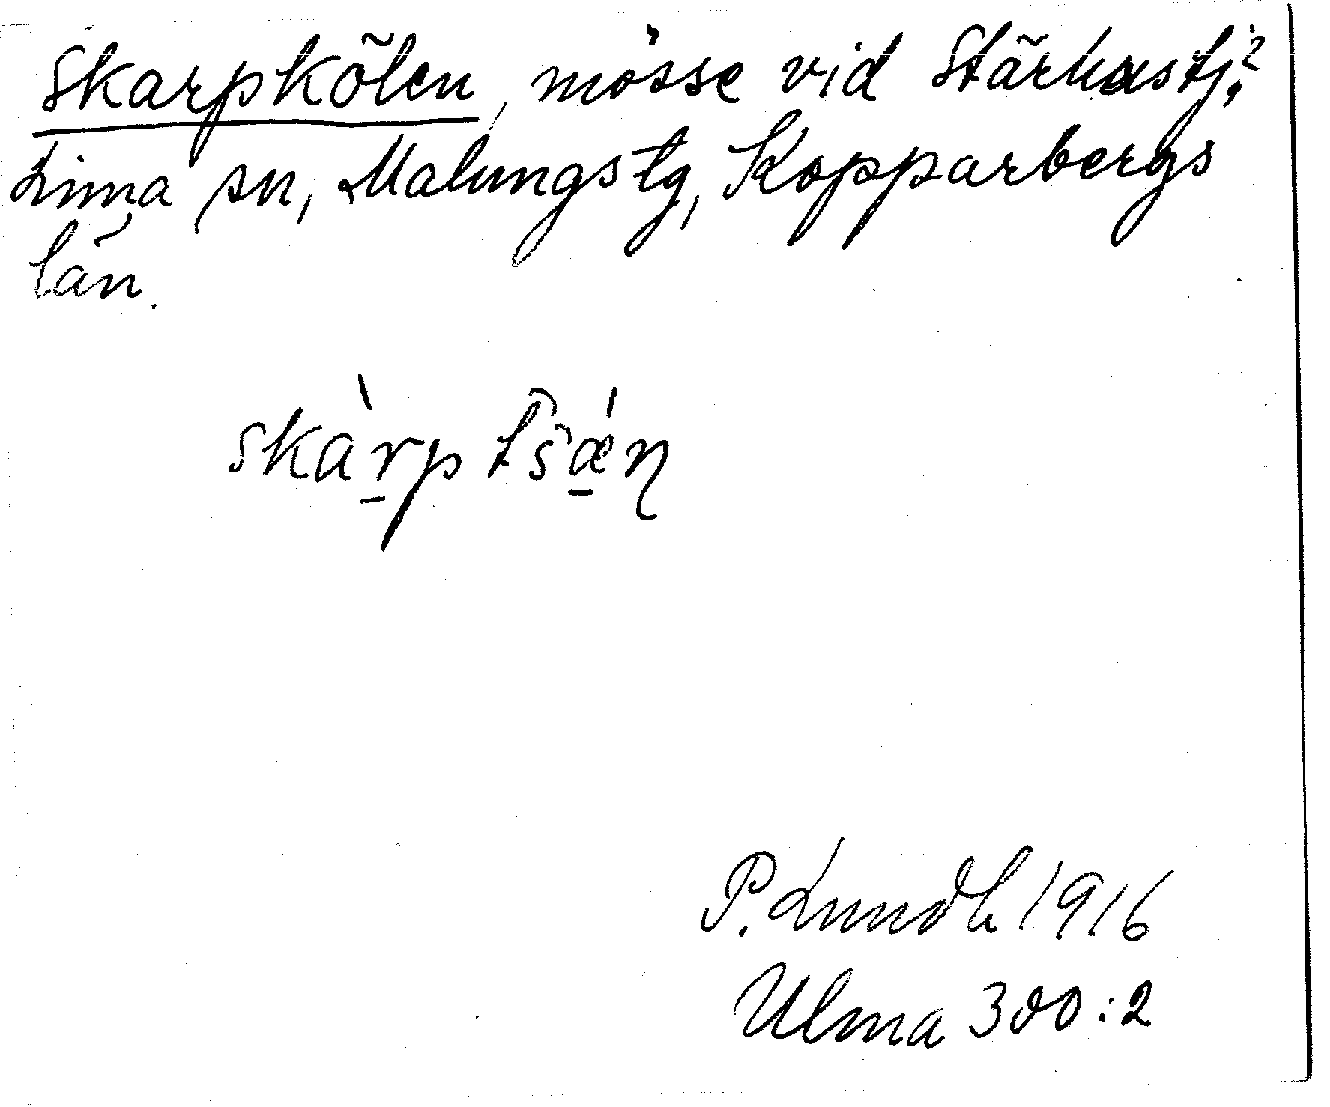 Skarpkölen, mosse vid Stärhustj.?
Lima sn, Malungs tg, Kopparbergs
län.
skàrp tšǽn
P. Lundh 1916
Ulma 300:2